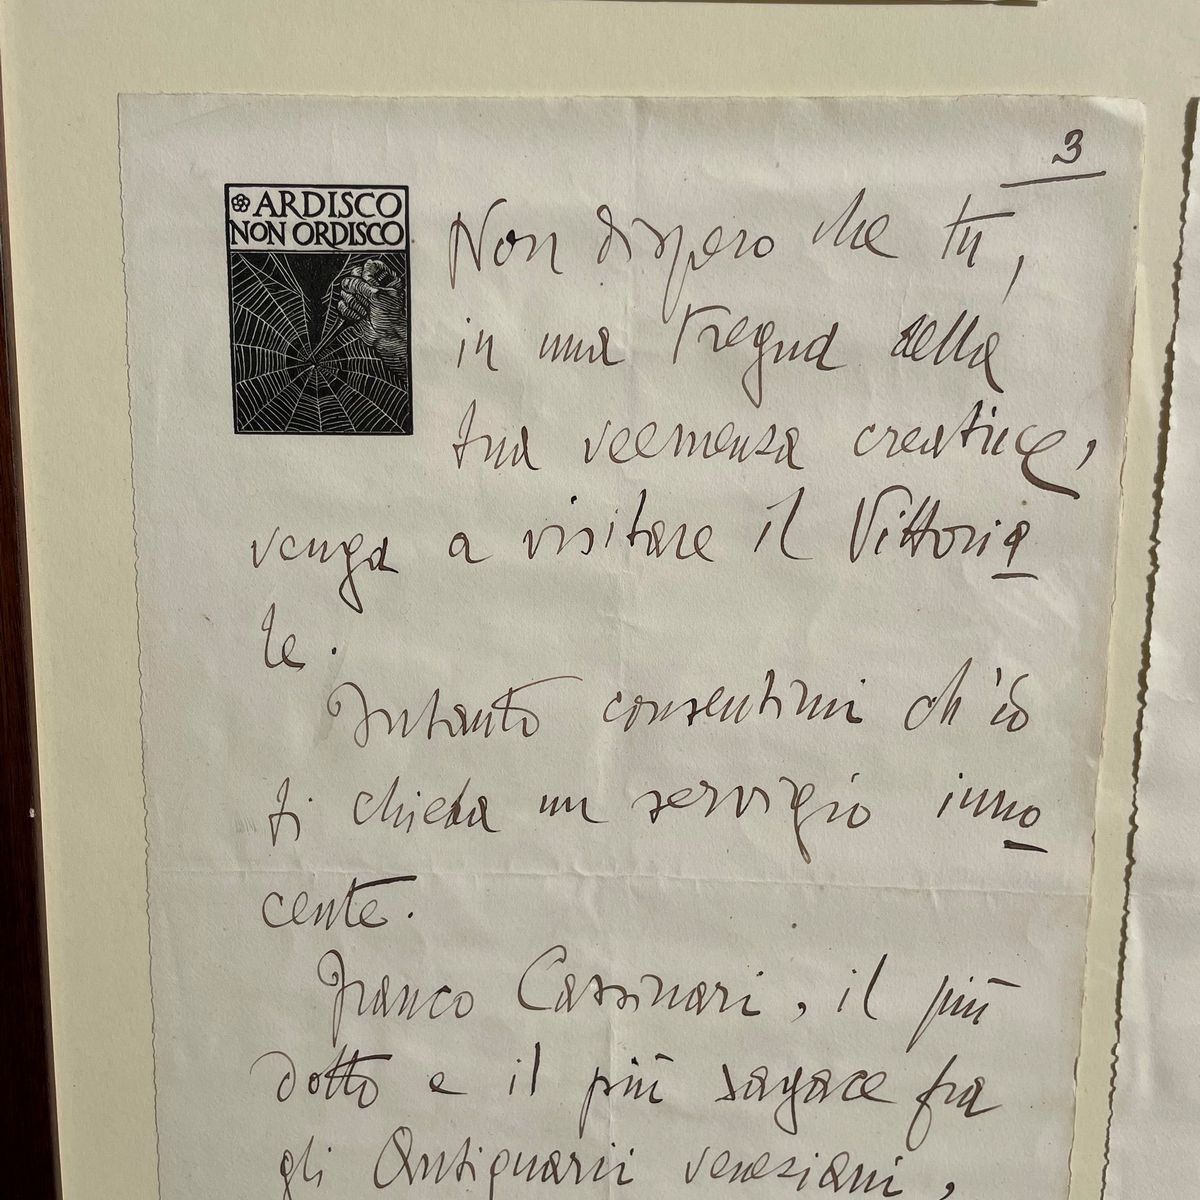 3
ARDISCO
NON ORDISCO
Non dispero che tu,
in una tregua della
tua veemenza creatrice,
venga a visitare il Vittoria
le.
Intanto consentimi ch'io
ti chieda un servigio inno
cente.
Franco Cassinari, il più
dotto e il più sagace fra
gli Antiquarii veneziani,